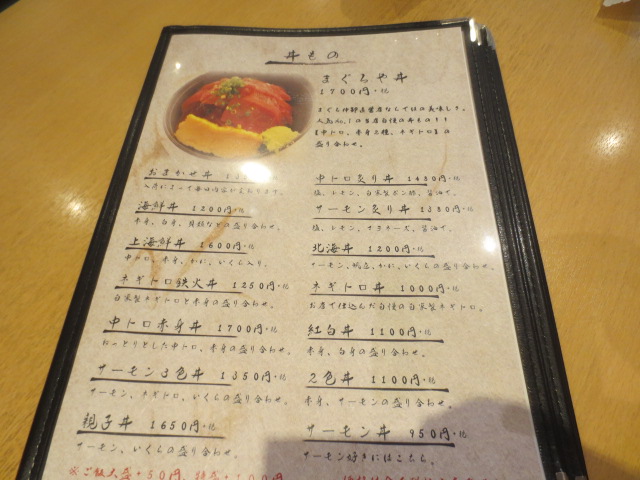 丼もの
まぐろや丼
1700円+税
まぐろ仲卸直営店ならではの美味しさ。
人気No.1の当店自慢の丼もの!!
中トロ、赤身三種、ネギトロ
盛り合わせ。
おまかせ丼
入荷によって毎日内容が変わります。
海鮮丼 1200円+税
赤身、白身、貝類などの盛り合わせ。
上海鮮丼 1600円+税
中トロ、赤身、かに、いくら入り。
ネギトロ鉄火丼 1250円+税
自家製ネギトロと赤身の盛り合わせ。
中トロ赤身丼 1700円+税
ねっとりとした中トロ、赤身の盛り合わせ。
サーモン3色丼 1350円+税
サーモン、ネギトロ、いくらの盛り合わせ。
親子丼 1650円+税
サーモン、いくらの盛り合わせ。
中トロ炙り丼 1480円+税
塩、レモン、自家製ポン酢、醤油で。
サーモン炙り丼 1380円+税
塩、レモン、マヨネーズ、醤油で。
北海丼 1200円+税
サーモン、帆立、かに、いくらの盛り合わせ。
ネギトロ丼 1000円+税
お店で仕込んだ自慢の自家製ネギトロ。
紅白丼 1100円+税
赤身、白身の盛り合わせ。
2色丼 1100円+税
赤身、サーモンの盛り合わせ。
サーモン丼 950円+税
サーモン好きにはこちら。
※ご飯大盛+50円、特盛+100円